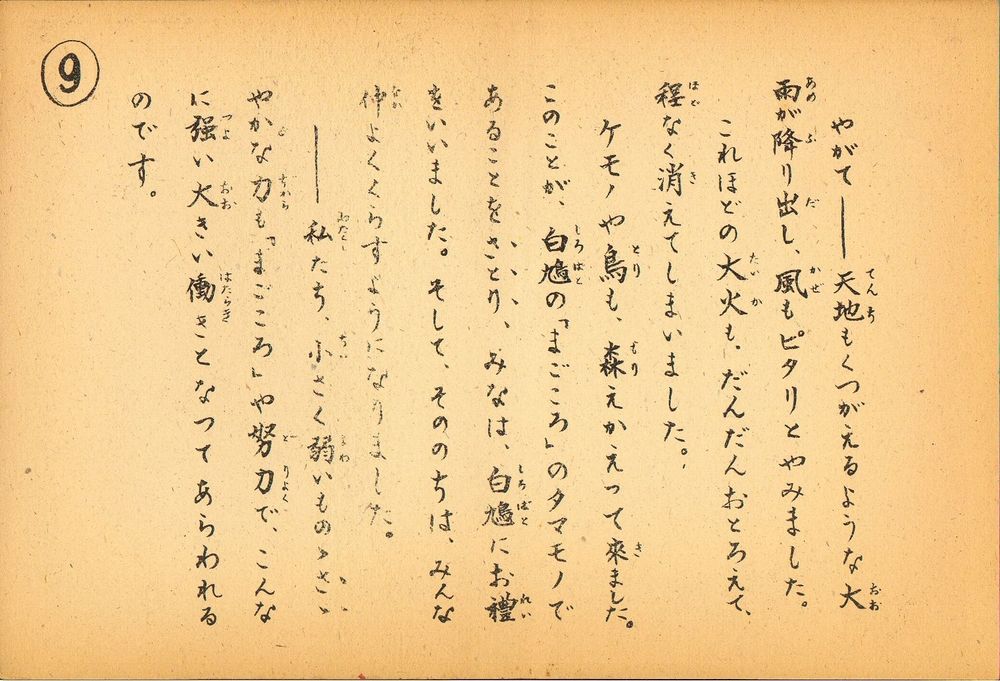 ⑨
やがて――天地もくつがえるような大
雨が降り出し、風もピタリとやみました。
これほどの大火も、だんだんおとろえて、
程なく消えてしまいました。
ケモノや鳥も、森えかえって來ました。
このことが、白鳩の「まごころ」のタマモノで
あることをさとり、みなは、白鳩にお禮
をいいました。そして、そののちは、みんな
仲よくくらすようになりました。
――私たち、小さく弱いものゝさゝ
やかな力も「まごころ」や努力で、こんな
に強い大きい働きとなつてあらわれる
のです。